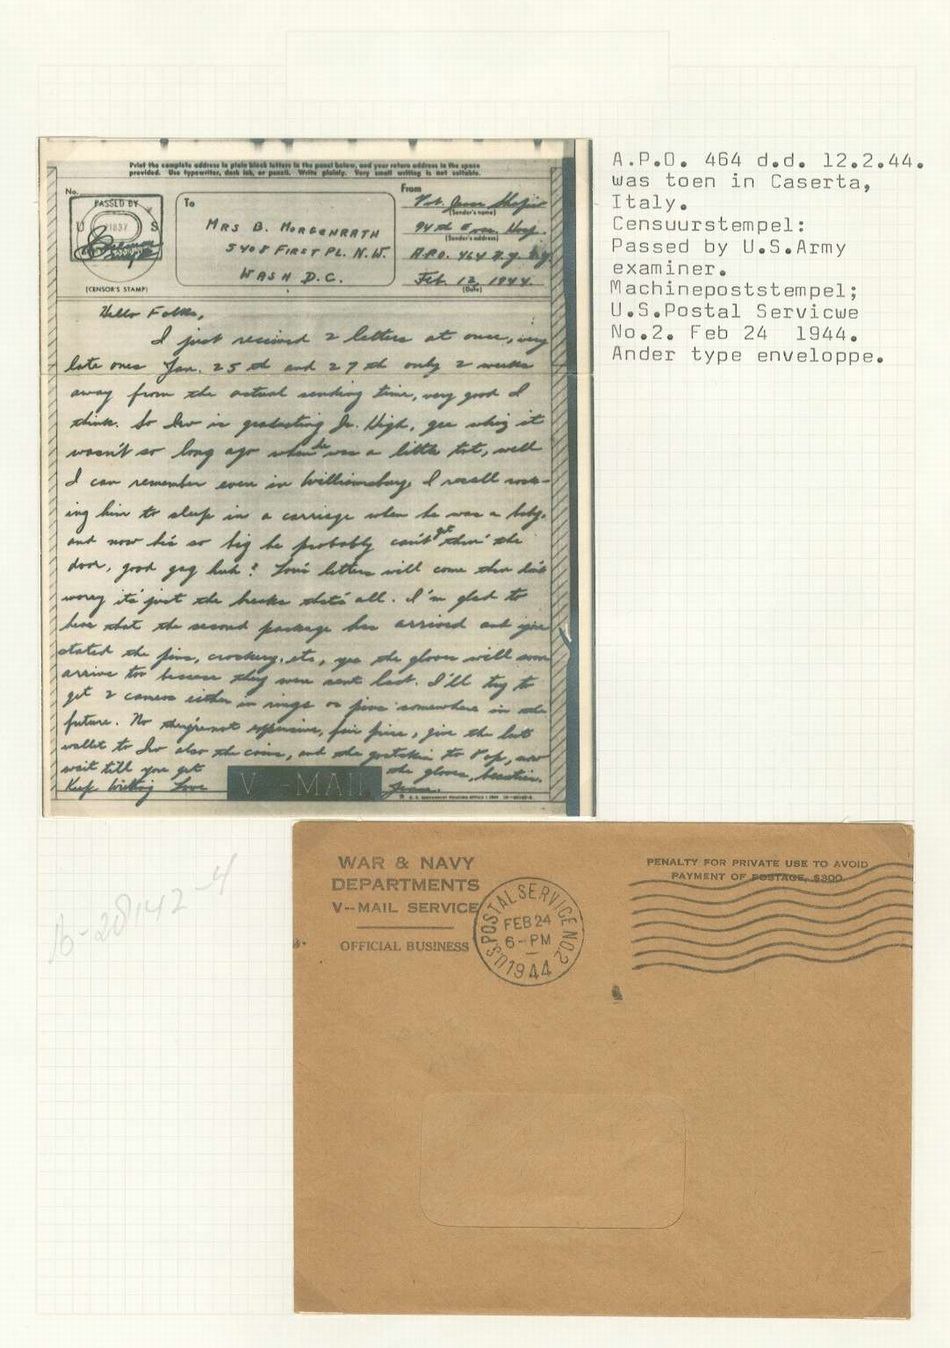 Print the complete address in plain block letters in the panel below, and your return address in the space
provided. Use typewriter, dark ink, or pencil. Write plainly. Very small writing is not suitable.
No.
PASSED BY
U S
1837
(CENSOR'S STAMP)
To
MRS B. MORGENRATH
5408 FIRST PL. N.W.
WASH D.C.
From
Pvt.
(Sender's name)
94th Evac. Hosp.
(Sender's address)
A.P.O. 464 N.Y. N.Y.
Feb. 12, 1944.
(Date)
Hello Folks,
I just received 2 letters at once, very
late ones Jan. 25th and 27th only 2 weeks
away from the actual sending time, very good I
think. So Irv is graduating Jr. High, gee whiz it
wasn't so long ago when he was a little tot, well
I can remember even in Williamsburg, I recall rock-
ing him to sleep in a carriage when he was a baby,
and now he's so big he probably can't get thru' the
door, good gag huh? letters will come thru don't
worry it's just the breaks that's all. I'm glad to
hear that the second package has arrived and you
stated the pins, crockery, etc, yes the gloves will soon
arrive too because they were sent last. I'll try to
get 2 cameos either in rings or pins somewhere in the
future. No they're not expensive, fair price, give the
wallet to Irv also the coins, and the to Pop, now
wait till you get the gloves, beauties.
Keep Writing Love
V--MAIL
A.P.O. 464 d.d. 12.2.44.
was toen in Caserta,
Italy.
Censuurstempel:
Passed by U.S.Army
examiner.
Machinepoststempel;
U.S.Postal Servicwe
No.2. Feb 24 1944.
Ander type enveloppe.
16-28142-4
WAR & NAVY
DEPARTMENTS
V--MAIL SERVICE
OFFICIAL BUSINESS
U.S. POSTAL SERVICE NO.2
FEB 24
6-PM
1944
PENALTY FOR PRIVATE USE TO AVOID
PAYMENT OF POSTAGE, $300